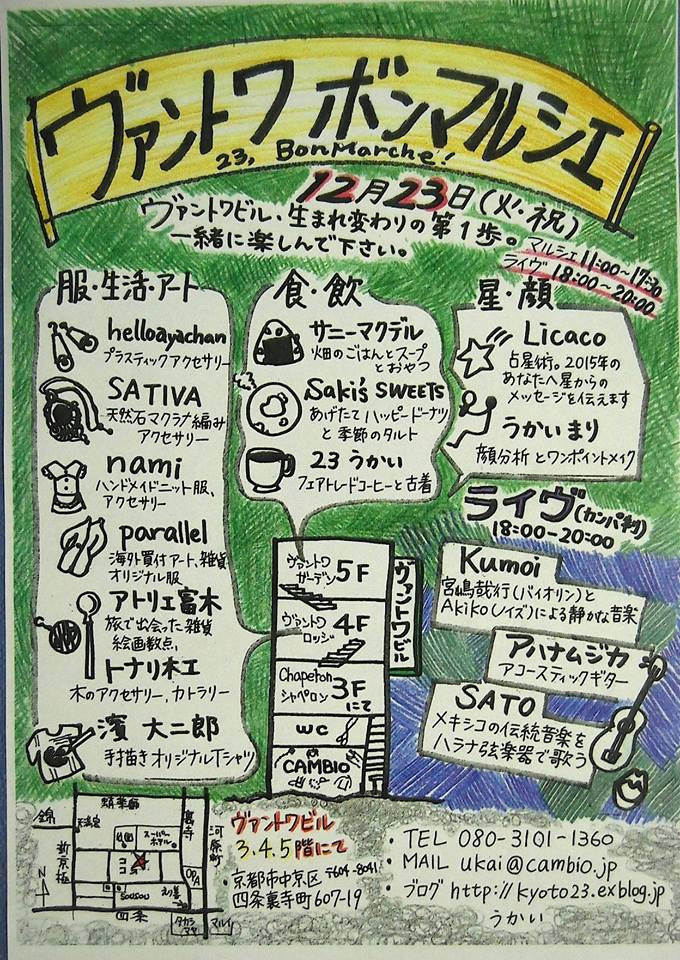 ヴァントワ ボンマルシェ
23, BonMarche'!
12月23日(火・祝)
ヴァントワビル、生まれ変わりの第1歩。
一緒に楽しんで下さい。
マルシェ 11:00〜17:30
ライヴ 18:00〜20:00
服・生活・アート
helloayachan
プラスティックアクセサリー
SATIVA
天然石マクラメ編み
アクセサリー
nami
ハンドメイドニット服、
アクセサリー
parallel
海外買付アート、雑貨
オリジナル服
アトリエ富木
旅で出会った雑貨
絵画数点、
トナリ木工
木のアクセサリー、カトラリー
濱 大二郎
手描きオリジナルTシャツ
食・飲
サニーマクデル
畑のごはんとスープ
とおやつ
Saki's SWEETS
あげたてハッピードーナツ
と季節のタルト
23 うかい
フェアトレードコーヒーと古着
星・顔
Licaco
占星術。2015年の
あなたへ星からの
メッセージを伝えます
うかい まり
顔分析とワンポイントメイク
ライヴ(カンパ制)
18:00-20:00
Kumoi
宮嶋哉行(バイオリン)と
Akiko(ノイズ)による静かな音楽
アハナムジカ
アコースティックギター
SATO
メキシコの伝統音楽を
ハラナ弦楽器で歌う
ヴァントワ
ガーデン 5F
ヴァントワ
ロッジ 4F
Chaperon
シャペロン 3F
にて
WC
CAMBIO
ヴァントワビル
蛸薬師
錦
天満宮
新京極
裏寺
河原町
スーパー
ホテル
ココ
OPA
sousou
四条
タカシ
マヤ
マルイ
N
ヴァントワビル
3.4.5階にて
・京都市中京区 〒604-8041
四条裏寺町607-19
・TEL 080-3101-1360
・MAIL ukai@cambio.jp
・ブログ http://kyoto23.exblog.jp
うかい